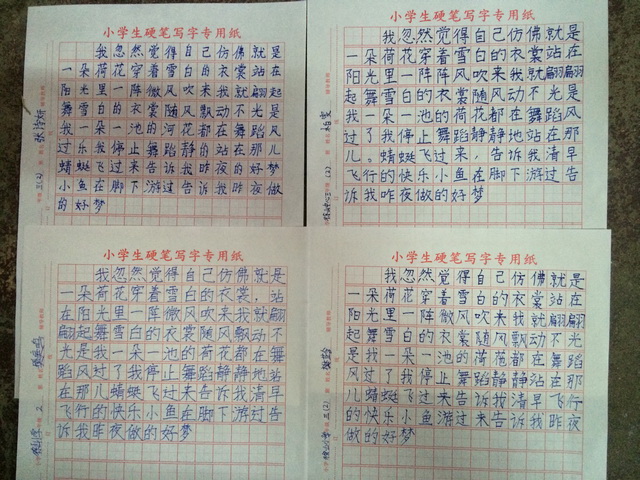 小学生硬笔写字专用纸
我忽然觉得自己仿佛就是
一朵荷花穿着雪白的衣裳站在
阳光里一阵微风吹来我就翩翩起
舞雪白的衣裳随风飘动不光是
我一朵一池的荷花都在舞蹈风
过了我停止舞蹈静静的站在那儿
蜻蜓飞过来告诉我清早飞行的快乐
小鱼在脚下游过告诉我昨夜做
的好梦
小学生硬笔写字专用纸
我忽然觉得自己仿佛就是
一朵荷花穿着雪白的衣裳站在
阳光里一阵阵风吹来我就翩翩
起舞雪白的衣裳随风动不光是
我一朵一池的荷花都在舞蹈风
过了我停止舞蹈静静地站在那
儿。蜻蜓飞过来,告诉我清早
飞行的快乐小鱼在脚下游过告
诉我昨夜做的好梦
小学生硬笔写字专用纸
我忽然觉得自己仿佛就是
一朵荷花穿着雪白的衣裳,站
在阳光里一阵微风吹来我就翩
翩起舞雪白的衣裳随风飘动不
光是我一朵一池的荷花都在舞
蹈风过了我停止舞蹈静静地站
在那儿蜻蜓飞过来告诉我清早
飞行的快乐小鱼在脚下游过告
诉我昨夜做的好梦
小学生硬笔写字专用纸
我忽然觉得自己仿佛就是
一朵荷花穿着雪白的衣裳站在
阳光里一阵微风吹来我就翩翩
起舞雪白的衣裳随风飘动不光
是我一朵一池的荷花都在舞蹈
风过了我停止舞蹈静静站在那
儿蜻蜓飞过来告诉我清早飞行
的快乐小鱼游过来告诉我昨夜
做的好梦